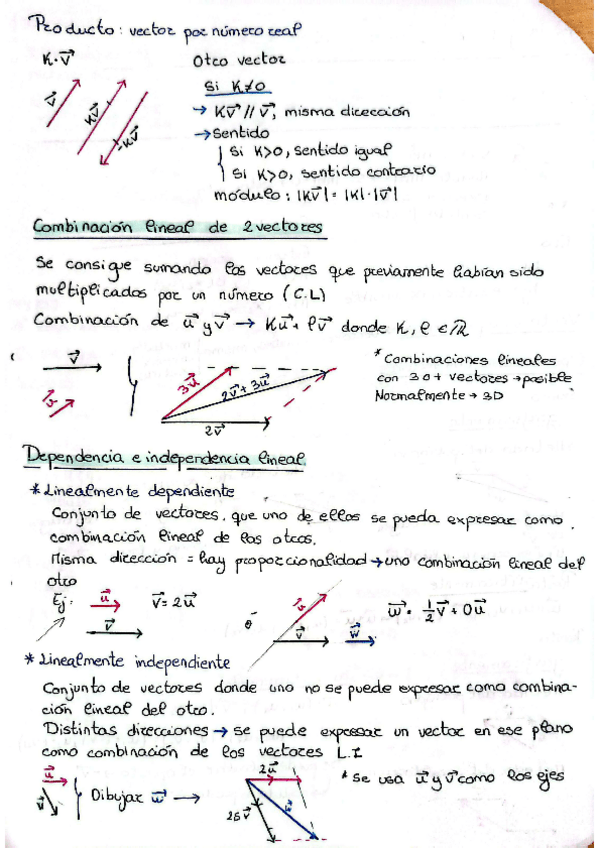 Producto: vector por número real
K·v⃗ Otro vector
Si K≠0
→ Kv⃗ // v⃗, misma dirección
→ Sentido
Si K>0, sentido igual
Si K>0, sentido contrario
módulo: |Kv⃗| = |K|·|v⃗|
v⃗ Kv⃗ -Kv⃗
Combinación lineal de 2 vectores
Se consigue sumando los vectores que previamente habían sido
multiplicados por un número (C.L)
Combinación de u⃗ y v⃗ → Ku⃗ + ℓv⃗ donde K, ℓ ∈ ℝ
v⃗ 3u⃗ 2v⃗ + 3u⃗ 2v⃗
* Combinaciones lineales
con 3 o + vectores → posible
Normalmente → 3D
Dependencia e independencia lineal.
* Linealmente dependiente
Conjunto de vectores, que uno de ellos se pueda expresar como
combinación lineal de los otros.
Misma dirección = hay proporcionalidad → uno combinación lineal del
otro
Ej: u⃗ v⃗ v⃗ = 2u⃗ v⃗ w⃗ w⃗ = 1/2 v⃗ + 0u⃗
* Linealmente independiente
Conjunto de vectores donde uno no se puede expresar como combina-
ción lineal del otro.
Distintas direcciones → se puede expresar un vector en ese plano
como combinación de los vectores L.I
u⃗ v⃗ Dibujar w⃗ → 2u⃗ 2'5v⃗ * Se usa u⃗ y v⃗ como los ejes